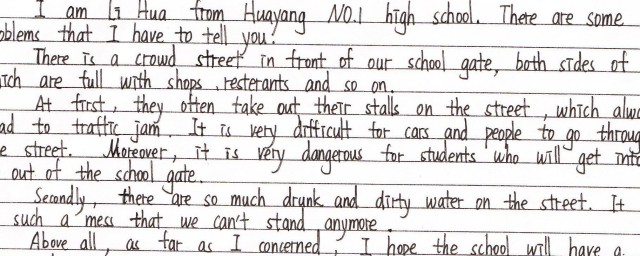 I am Li Hua from Huayang NO.1 high school. There are some
oblems that I have to tell you.
There is a crowd street in front of our school gate, both sides of
ich are full with shops, resterants and so on.
At first, they often take out their stalls on the street, which alwa
ad to traffic jam. It is very difficult for cars and people to go throug
e street. Moreover, it is very dangerous for students who will get into
out of the school gate.
Secondly, there are so much drunk and dirty water on the street. It
such a mess that we can't stand anymore.
Above all, as far as I concerned, I hope the school will have a